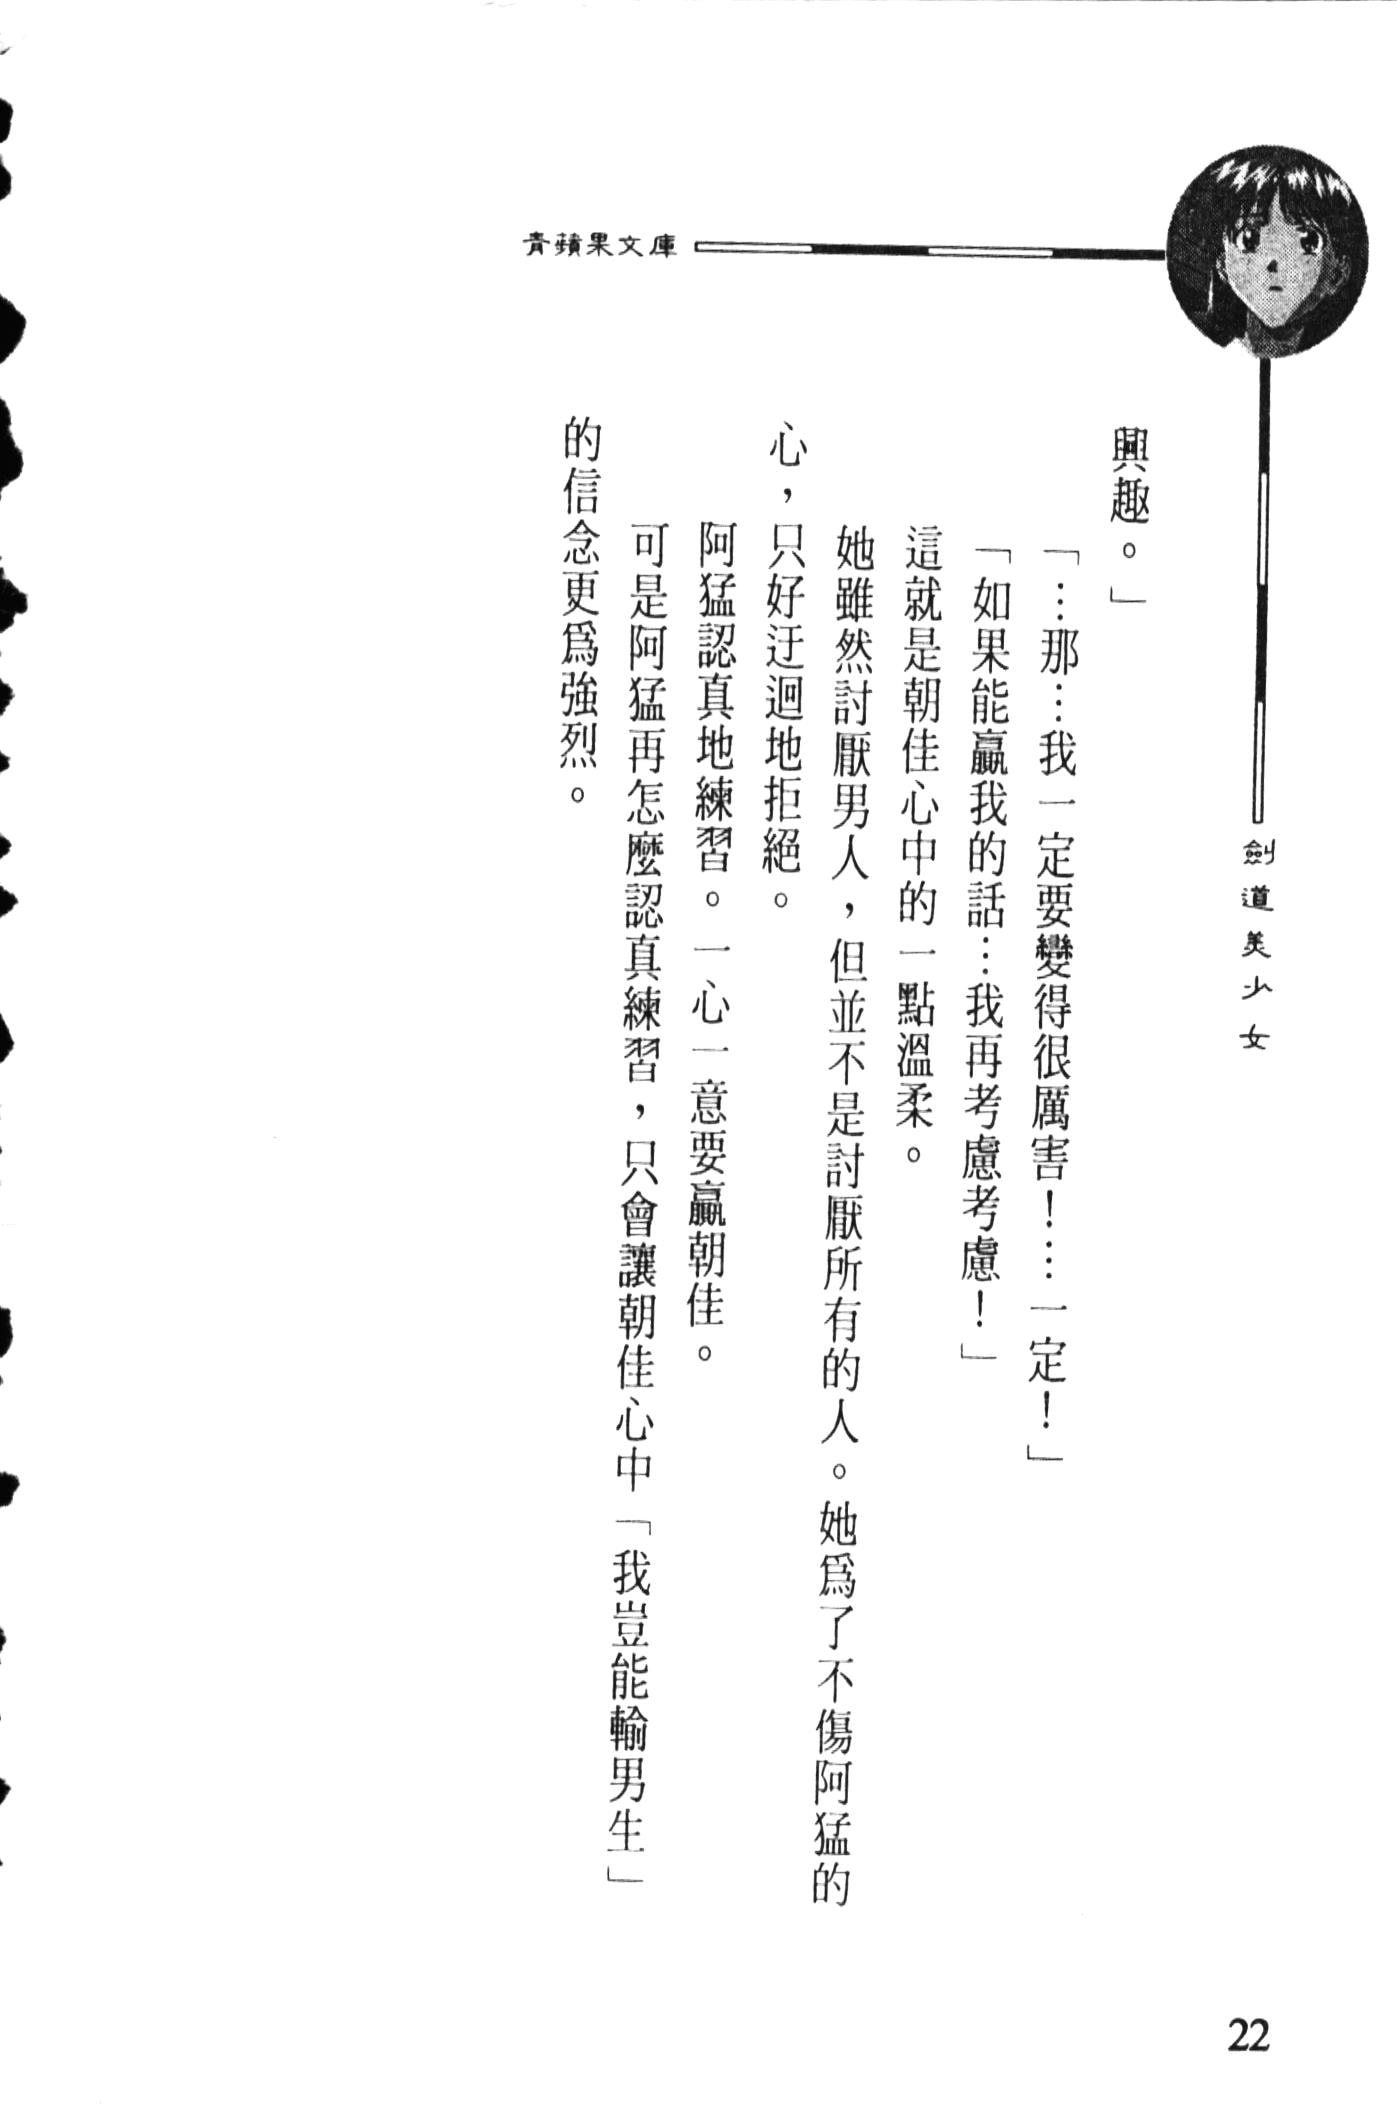 青蘋果文庫
劍道美少女
興趣。」
「…那…我一定要變得很厲害！…一定！」
「如果能贏我的話…我再考慮考慮！」
這就是朝佳心中的一點溫柔。
她雖然討厭男人，但並不是討厭所有的人。她為了不傷阿猛的
心，只好迂迴地拒絕。
阿猛認真地練習。一心一意要贏朝佳。
可是阿猛再怎麼認真練習，只會讓朝佳心中「我豈能輸男生」
的信念更為強烈。
22